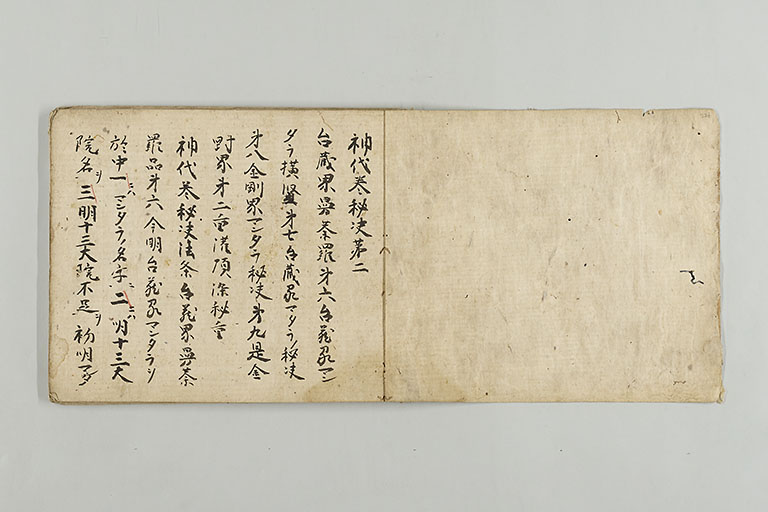 神代巻秘决第二
台蔵界曼荼羅第六台蔵界マン
タラ横竪第七台蔵界マタラノ秘决
第八金剛界マンタラ秘决第九是金
界第二重灌頂深秘重
神代巻秘决法条台蔵界曼荼
羅品第六今明台蔵界マンタラヲ
於中一ニハマンタラノ名字ニ二ニハ明十三大
院名ヲ三明十三大院不足ヲ初明マタ